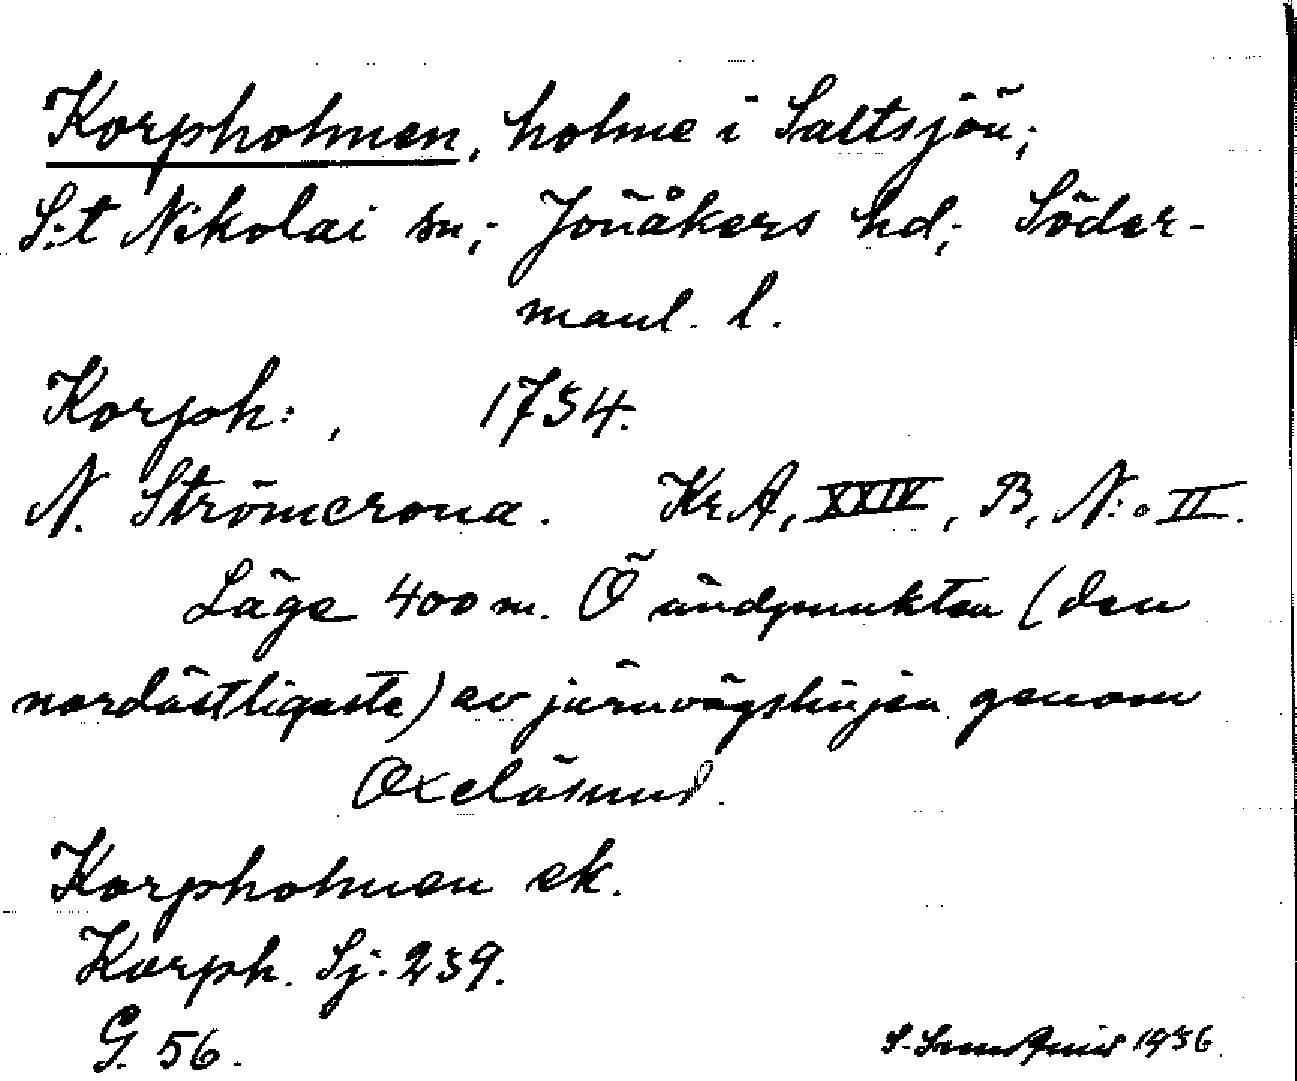 Korpholmen, holme i Saltsjön;
S:t Nikolai sn; Jönåkers hd; Söder-
manl. l.
Korph:, 1734.
N. Strömcrona. Kr.A, XXIV, B, N:o II.
Läge 400 m. Ö ändpunkten (den
nordöstligaste) av järnvägslinjen genom
Oxelösund.
Korpholmen ek.
Korph. Sj. 239.
G. 56.
S. 1936.